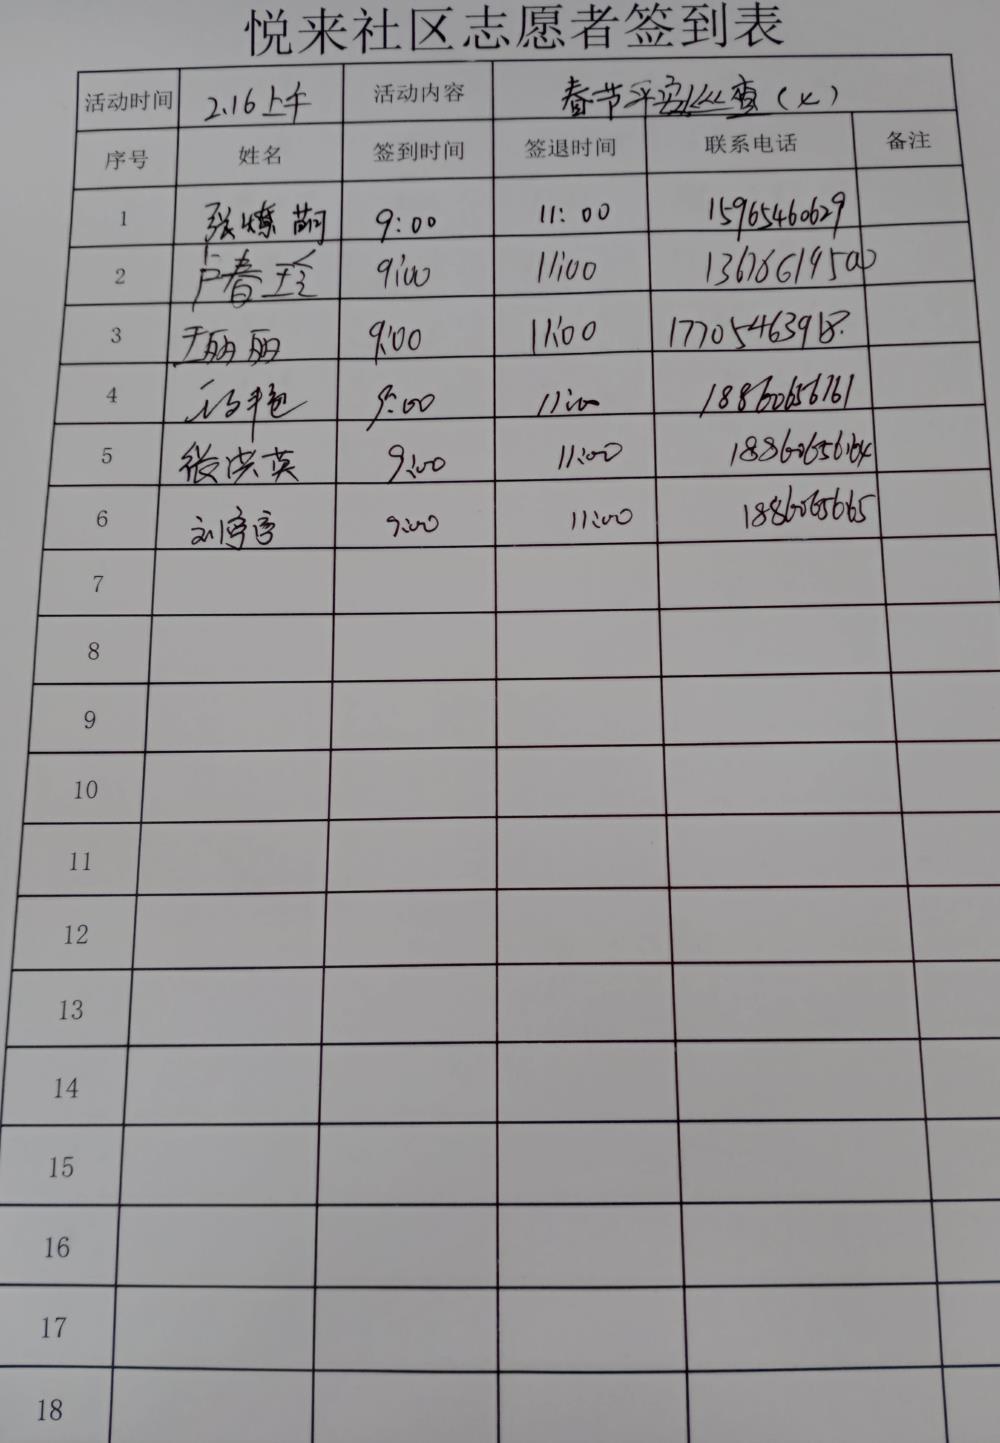 悦来社区志愿者签到表
活动时间 2.16上午 活动内容 春节平安巡查(火)
序号 姓名 签到时间 签退时间 联系电话 备注
1 张 9:00 11:00 15965460629
2 卢春玲 9:00 11:00
3 于丽丽 9:00 11:00
4 9:00 11:00 18860656761
5 张洪英 9:00 11:00
6 刘淳淳 9:00 11:00
7
8
9
10
11
12
13
14
15
16
17
18